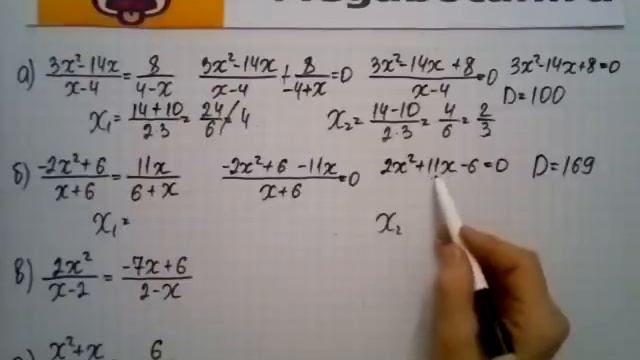 а) (3x²-14x)/(x-4) = 8/(4-x) (3x²-14x)/(x-4) + 8/(-4+x) = 0 (3x²-14x+8)/(x-4) = 0 3x²-14x+8=0
D=100
x₁ = (14+10)/(2·3) = 24/6 = 4 x₂ = (14-10)/(2·3) = 4/6 = 2/3
б) (-2x²+6)/(x+6) = 11x/(6+x) (-2x²+6-11x)/(x+6) = 0 2x²+11x-6=0 D=169
x₁ = x₂
в) 2x²/(x-2) = (-7x+6)/(2-x)
x²+x 6